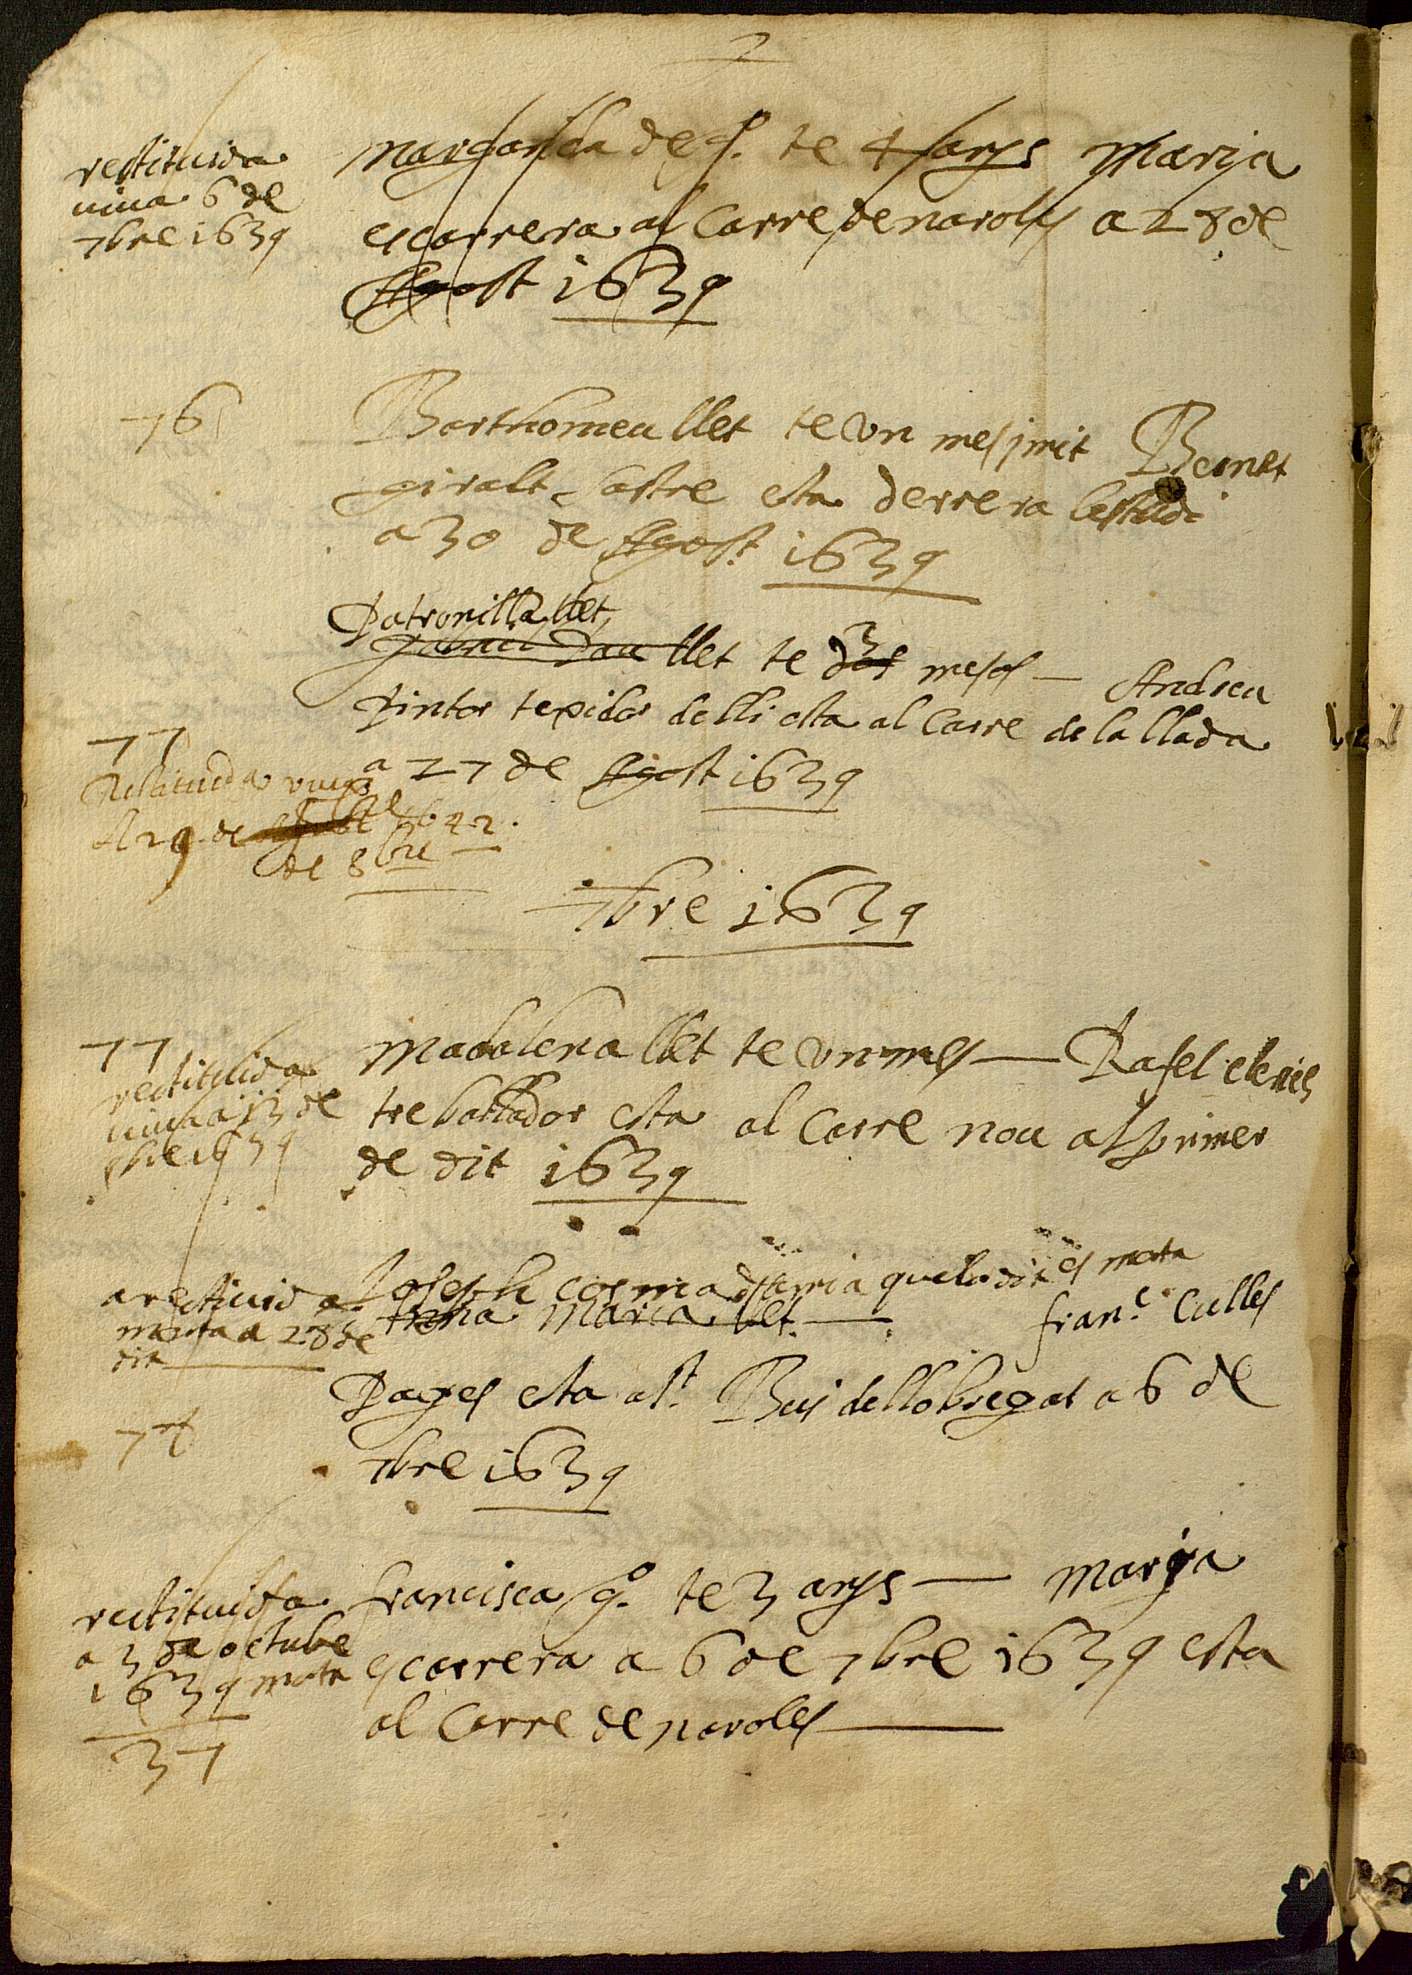 restituida
viva 6 de
7bre 1639
Margarida de qª. te 4 anys Maria
escarrera al Carre de naroles a 28 de
Agost 1639
76
Barthomeu llet te vn mes j mit Bernat
giralt sastre esta derrera lestudi
a 30 de Agost 1639
Patronilla llet,
llet te 3 mesos — Andreu
Pintor texidor de lli esta al Carre de la llada
a 27 de Agost 1639
77
Restituida viva
A 29 de 1642.
de 8bre
7bre 1639
77
restituida
viva a 13 de
1639
Madalena llet te vn mes — Rafel
treballador esta al Carre nou al primer
de dit 1639
a restituida
morta a 28 de
dit
78
Joseph cosma damia que lo dit es mort
Anna Maria llet. — franc. Culles
Pages esta a St. Boi de llobregat a 6 de
7bre 1639
restituida
a 3 de octubre
1639 morta
37
francisca qª. te 3 anys — Maria
escarrera a 6 de 7bre 1639 esta
al Carre de naroles